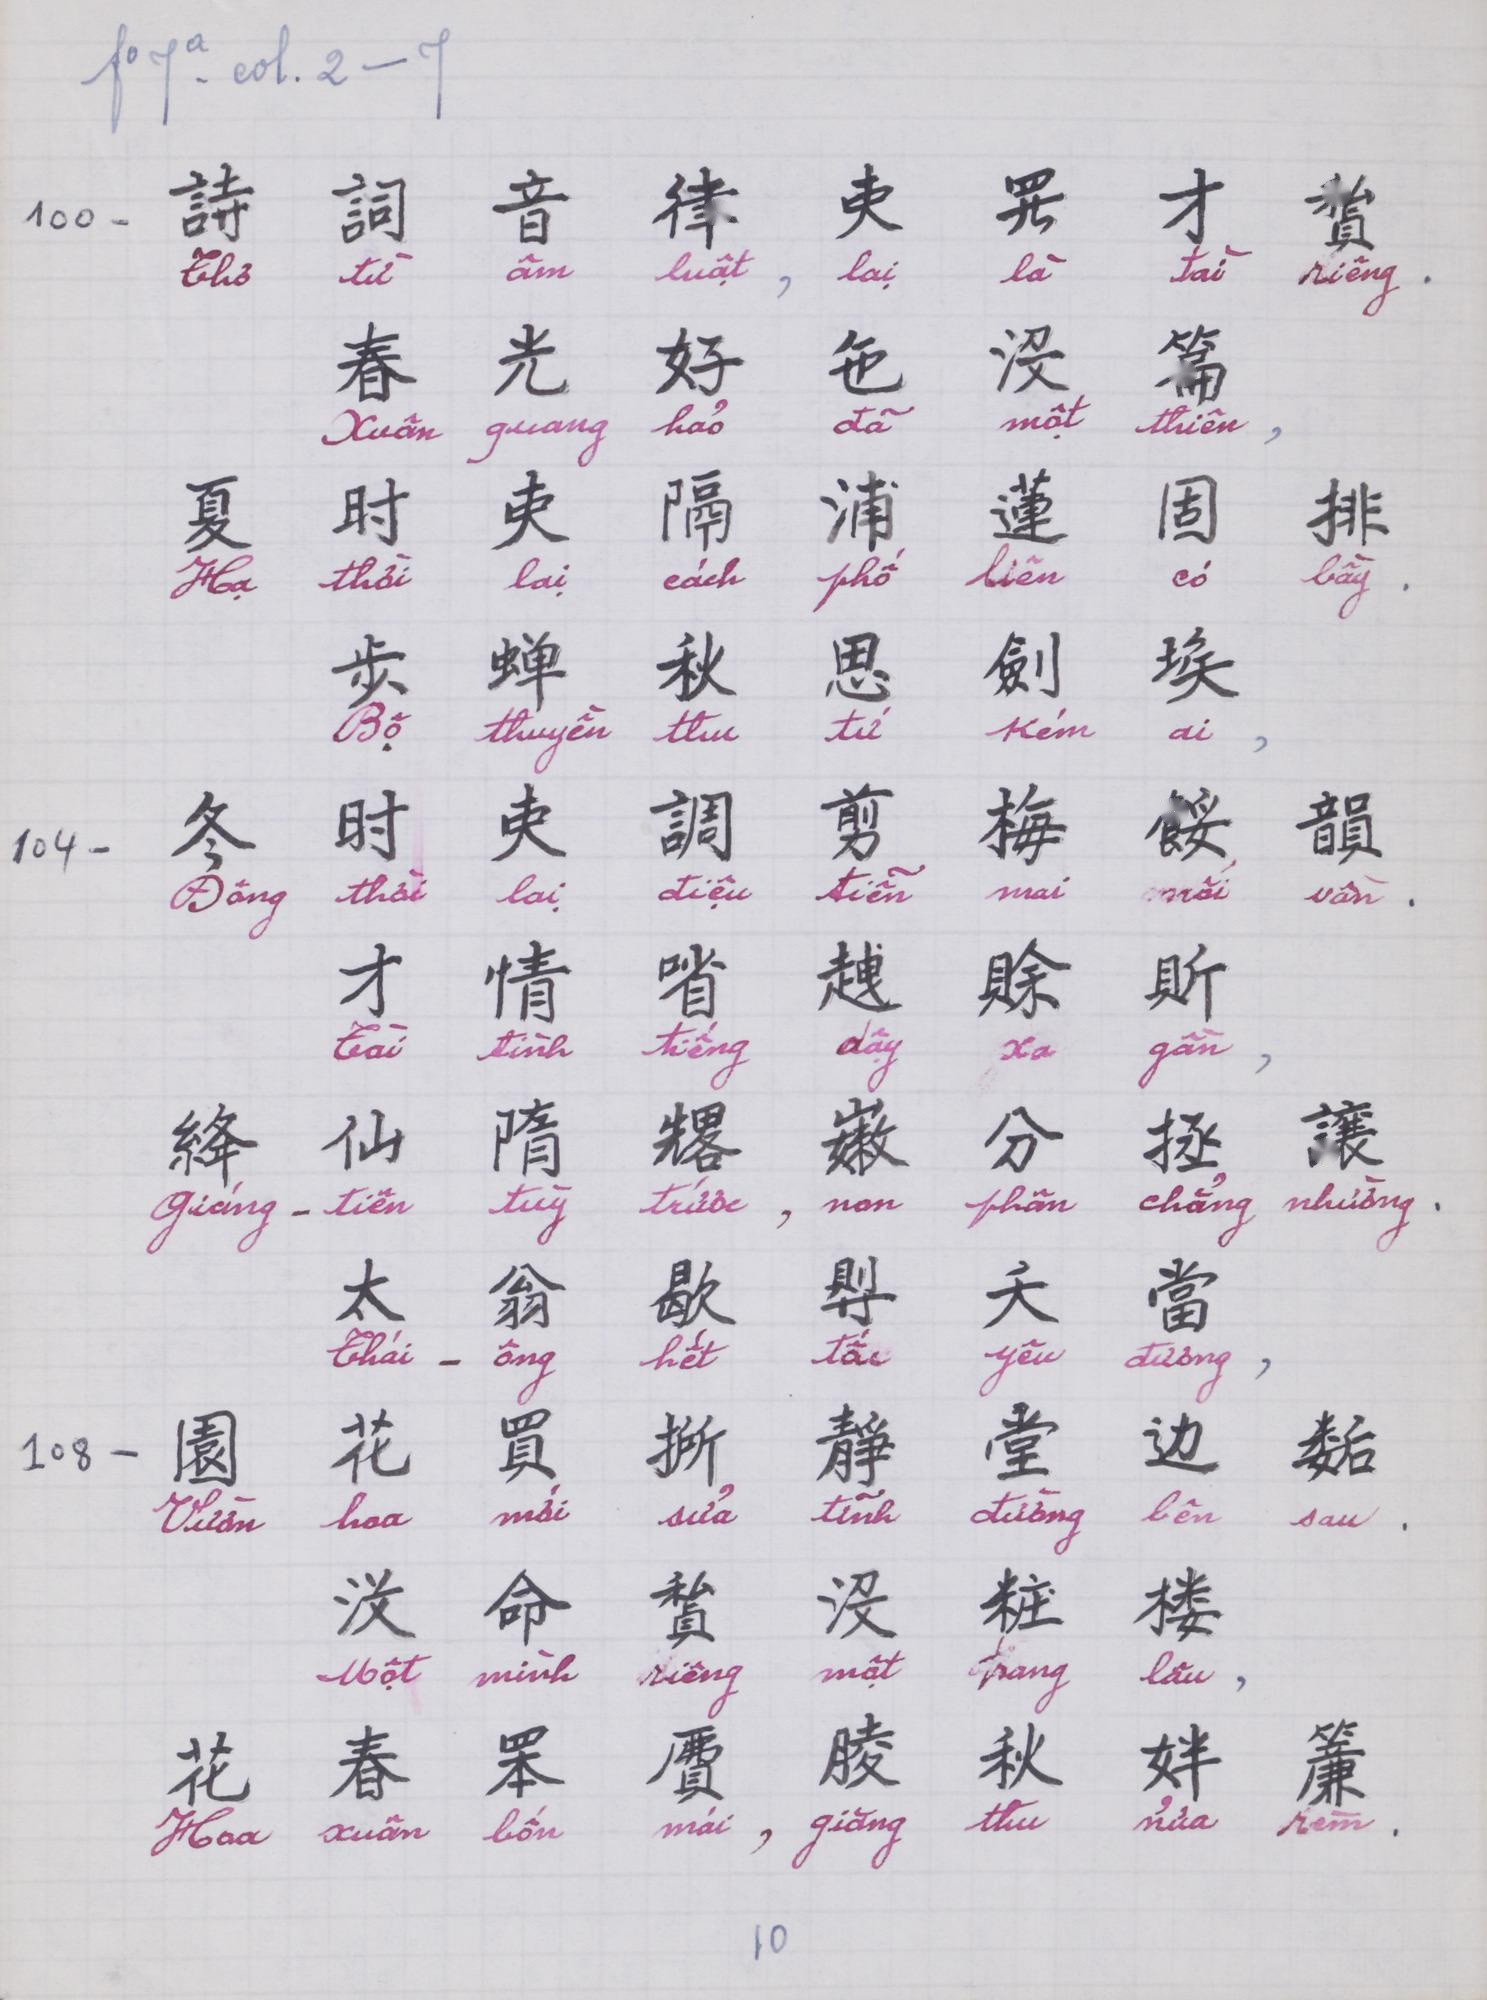 fº 7ª. col. 2 – 7
100 - 詩 詞 音 律 吏 𱺵 才 𥢆
Thơ từ âm luật, lại là tài riêng.
春 光 好 㐌 没 篇
Xuân quang hảo đã một thiên,
夏 时 吏 隔 浦 蓮 固 排
Hạ thời lại cách phố liên có bầy.
步 蝉 秋 思 劍 埃
Bộ thuyền thu tứ kém ai,
104 - 冬 时 吏 調 剪 梅 餒 韻
Đông thời lại điệu tiễn mai mối vần.
才 情 㗂 𧽈 賖 𧵆
Tài tình tiếng dậy xa gần,
絳 仙 隋 𠓀 嫩 分 拯 讓
Giáng - tiên tuỳ trước, non phân chẳng nhường.
太 翁 歇 𢭂 夭 當
Thái - ông hết tấc yêu đương,
108 - 園 花 買 𢯢 靜 堂 边 𢖖
Vườn hoa mới sửa tĩnh đường bên sau.
没 命 𥢆 没 粧 楼
Một mình riêng một trang lâu,
花 春 𦊚 𧷸 𦝄 秋 姅 簾
Hoa xuân bốn mái, giăng thu nửa rèm.
10